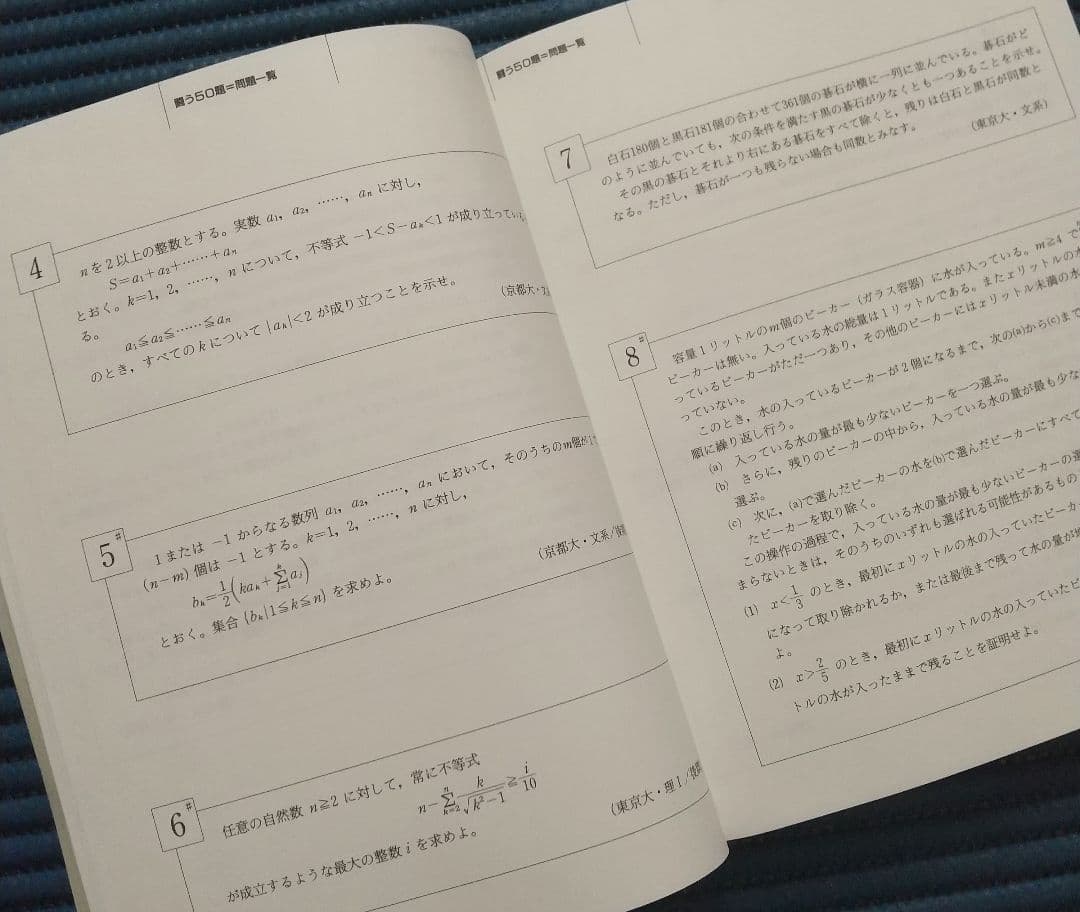 闘う50題=問題一覧
4
nを2以上の整数とする。実数 a₁, a₂, ……, aₙ に対し,
S=a₁+a₂+……+aₙ
とおく。k=1, 2, ……, n について, 不等式 −1<S−aₖ<1 が成り立ってい
る。
a₁≦a₂≦……≦aₙ
のとき, すべての k について |aₖ|<2 が成り立つことを示せ。
(京都大・
5#
1または −1 からなる数列 a₁, a₂, ……, aₙ において, そのうちのm個が
(n−m) 個は −1 とする。k=1, 2, ……, n に対し,
bₖ=1/2(kaₖ+∑_{j=1}^{k}aⱼ)
とおく。集合 {bₖ|1≦k≦n} を求めよ。
(京都大・文系/
6#
任意の自然数 n≧2 に対して, 常に不等式
n−∑_{k=2}^{n} k/√(k²−1) ≧ i/10
が成立するような最大の整数 i を求めよ。
(東京大・理Ⅰ/
闘う50題=問題一覧
7
白石180個と黒石181個の合わせて361個の碁石が横に一列に並んでいる。碁石がど
のように並んでいても, 次の条件を満たす黒の碁石が少なくとも一つあることを示せ。
その黒の碁石とそれより右にある碁石をすべて除くと, 残りは白石と黒石が同数と
なる。ただし, 碁石が一つも残らない場合も同数とみなす。
(東京大・文系)
8#
容量1リットルのm個のビーカー (ガラス容器) に水が入っている。m≧4 で
ビーカーは無い。入っている水の総量は1リットルである。またxリットルの水
っているビーカーがただ一つあり, その他のビーカーにはxリットル未満の水
っていない。
このとき, 水の入っているビーカーが2個になるまで, 次の(a)から(c)まで
順に繰り返し行う。
(a) 入っている水の量が最も少ないビーカーを一つ選ぶ。
(b) さらに, 残りのビーカーの中から, 入っている水の量が最も少な
選ぶ。
(c) 次に, (a)で選んだビーカーの水を(b)で選んだビーカーにすべて
たビーカーを取り除く。
この操作の過程で, 入っている水の量が最も少ないビーカーの選
まらないときは, そのうちのいずれも選ばれる可能性があるもの
(1) x<1/3 のとき, 最初にxリットルの水の入っていたビーカー
になって取り除かれるか, または最後まで残って水の量が
よ。
(2) x>2/5 のとき, 最初にxリットルの水の入っていたビ
トルの水が入ったままで残ることを証明せよ。